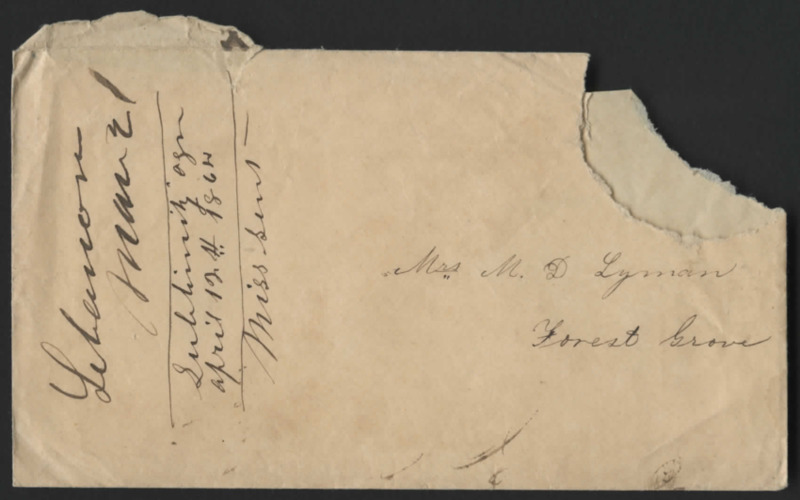 Lebanon
Mar 21
Sublimity ogn
april 13th 1864
Miss sent
Mrs M. D Lyman
Forest Grove